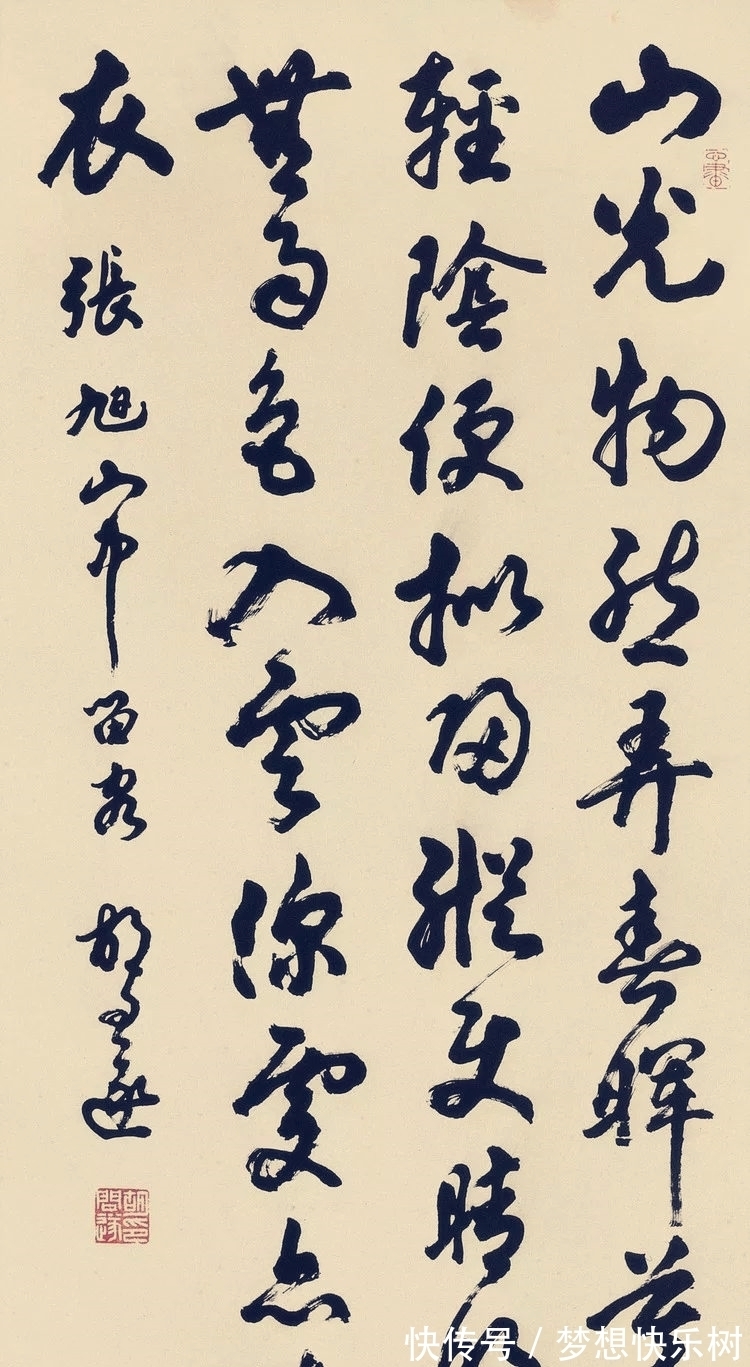 山光物態弄春暉
輕陰便拟歸縱使晴
無雨色入雲深處亦
衣 張旭山中留客 胡問遂
快传号 / 梦想快乐树